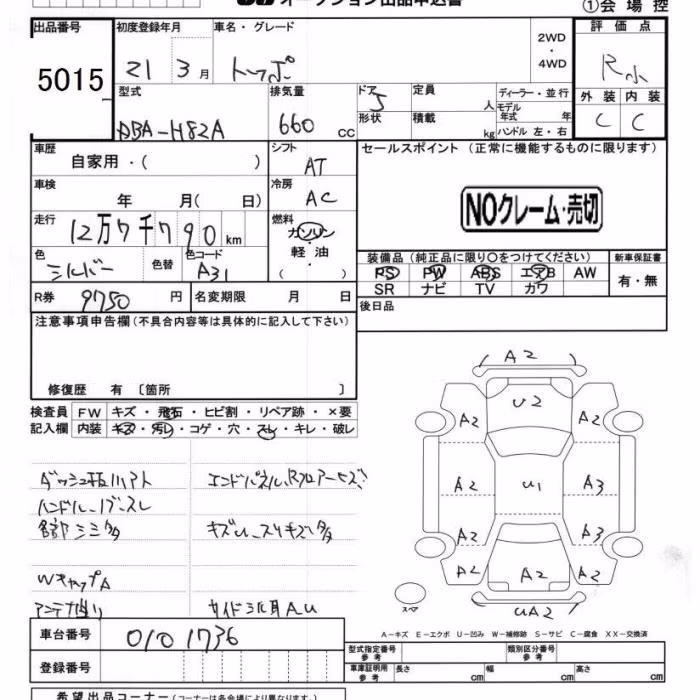 オークション出品申込書
①会場控
出品番号
5015
初度登録年月
21 3月
車名・グレード
トッポ
2WD
・
4WD
評価点
R
外装 内装
C C
型式
DBA-H82A
排気量
660 CC
ドア
5
形状
定員
人
積載
kg
ディーラー・並行
モデル
年式 年
ハンドル 左・右
車歴
自家用・( )
シフト
AT
車検
年 月( 日)
冷房
AC
走行
12万7千790km
燃料
ガソリン
・
軽油
( )
色
シルバー
色替
色コード
A31
R券 9750 円
名変期限 月 日
セールスポイント (正常に機能するものに限ります)
NOクレーム・売切
装備品 (純正品に限り○をつけてください)
PS PW ABS エアB AW
SR ナビ TV カワ
新車保証書
有・無
後日品
注意事項申告欄(不具合内容等は具体的に記入して下さい)
修復歴 有 〔箇所 〕
検査員 FW キズ・飛石・ヒビ割・リペア跡・×要
記入欄 内装 キズ・汚レ・コゲ・穴・スレ・キレ・破レ
エンドパネル
ハンドル
WキャップA
アンテナ
A2
U2
A2 A2
A2 U1 A3
A2 A3
A2 A2 A2
UA2
スペア
A-キズ E-エクボ U-凹み W-補修跡 S-サビ C-腐食 XX-交換済
車台番号 0101736
登録番号
型式指定番号
参考
類別区分番号
参考
車庫証明用
参考
長さ cm 幅 cm 高さ cm
希望出品コーナー(コーナーは各会場により異なります)